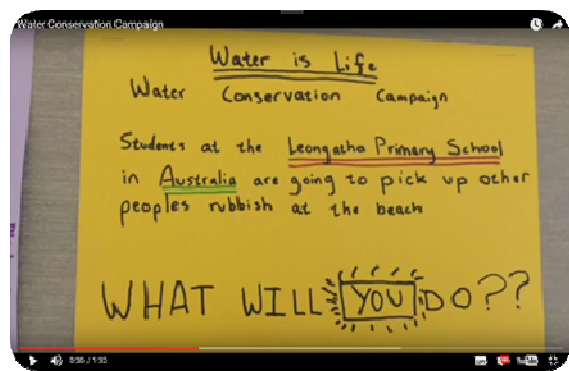 Water Conservation Campaign
Water is Life
Water Conservation Campaign
Students at the Leongatha Primary School
in Australia are going to pick up other
peoples rubbish at the beach
WHAT WILL YOU DO??